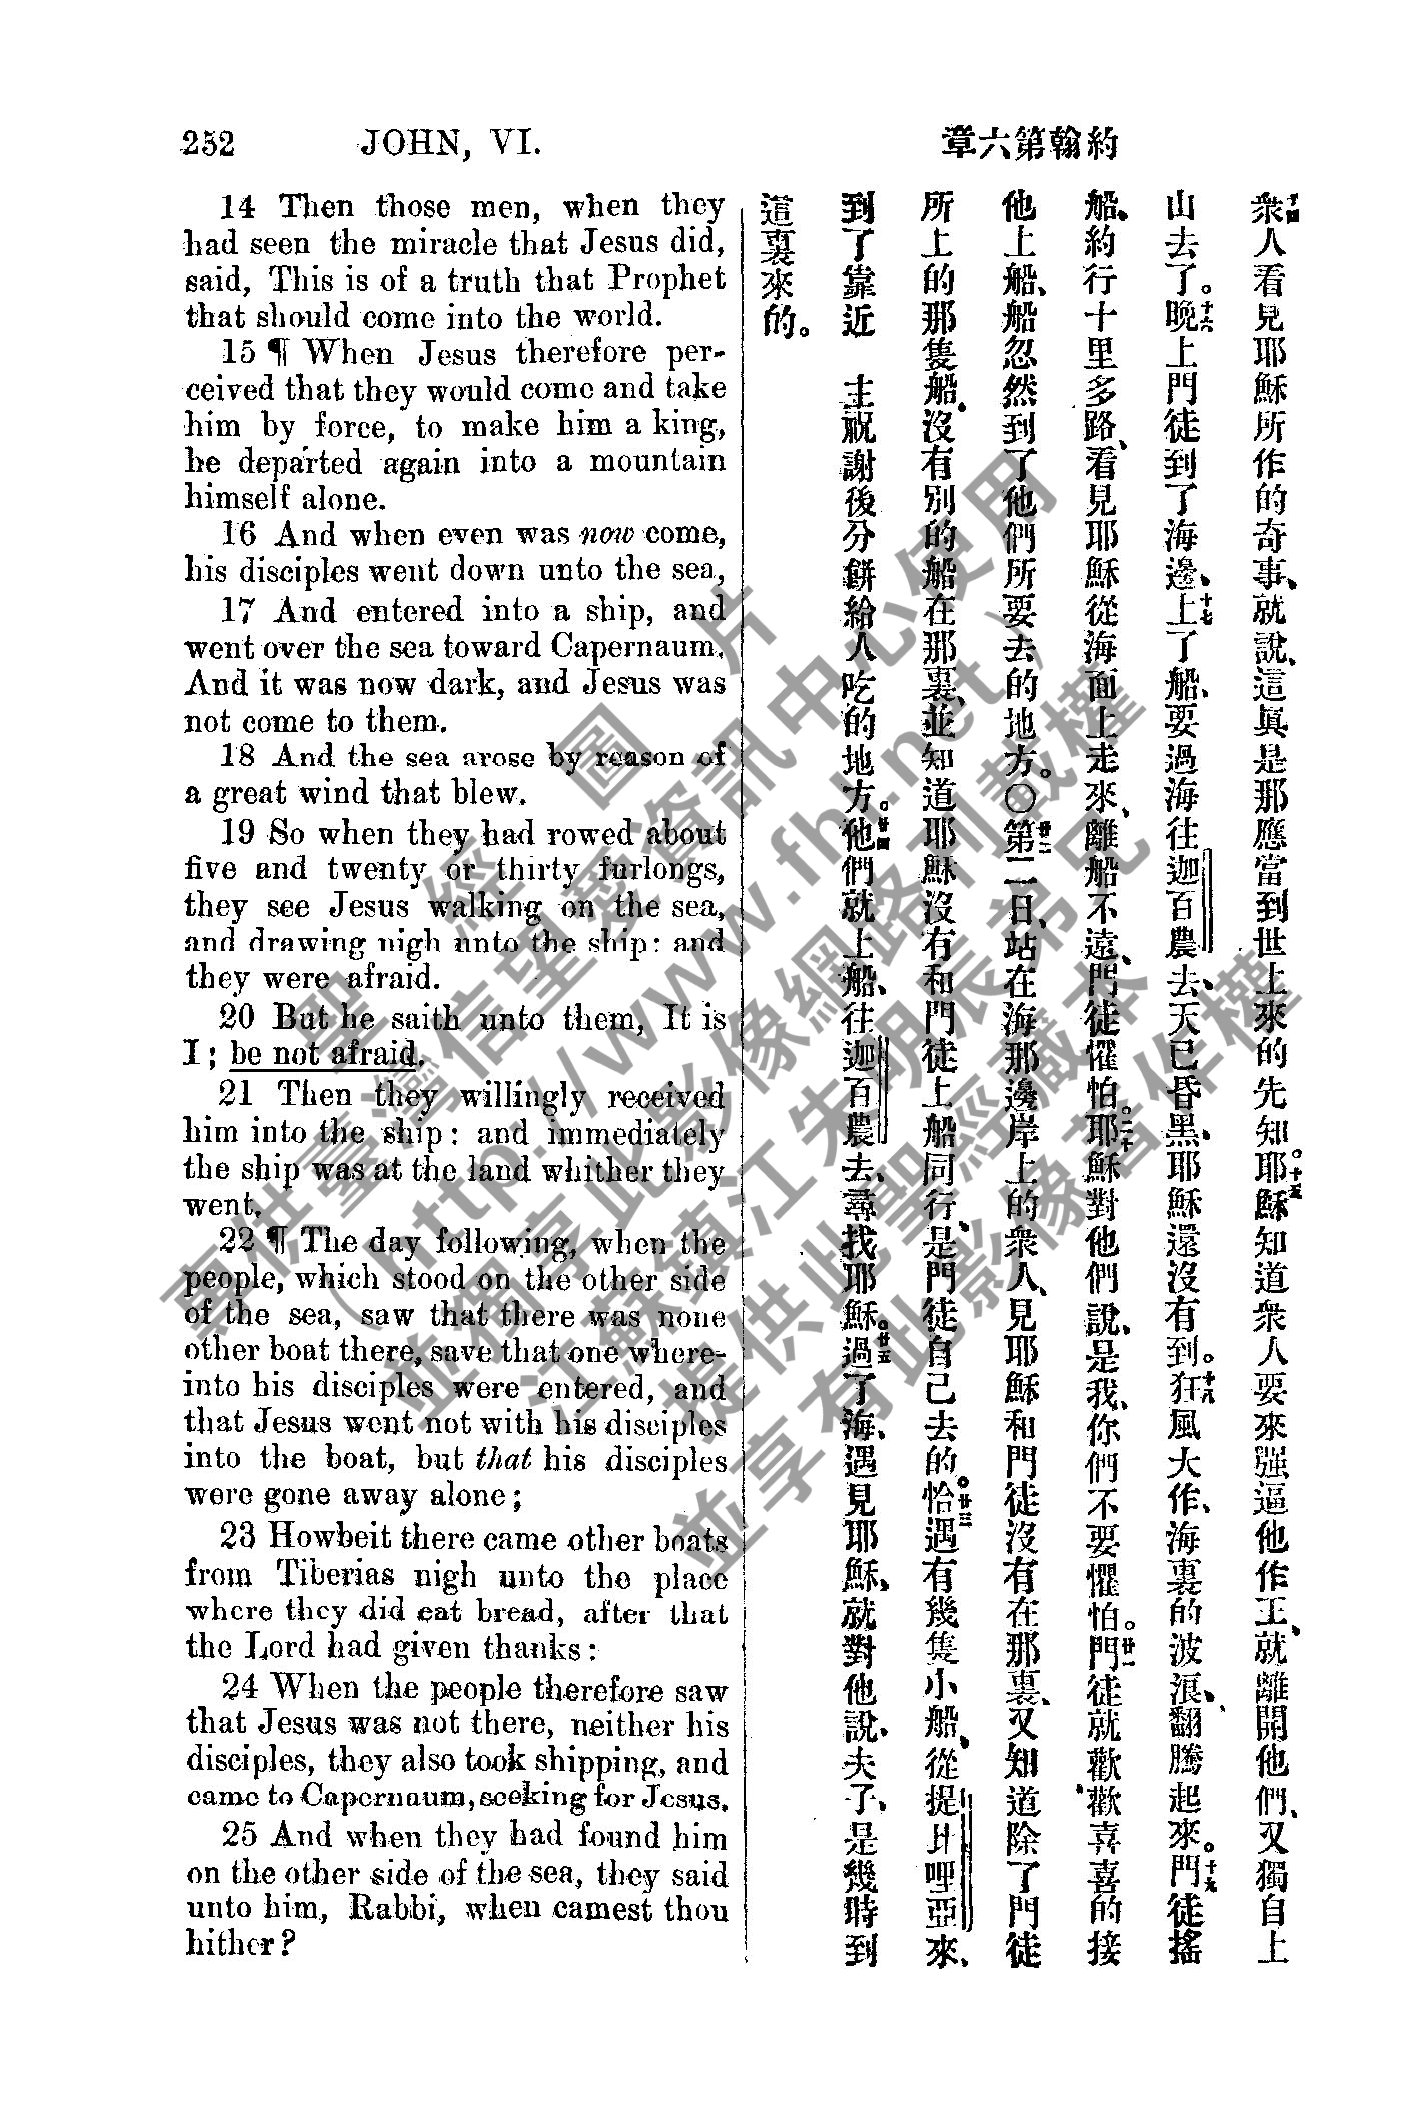 252 JOHN, VI.
章六第翰約
14 Then those men, when they
had seen the miracle that Jesus did,
said, This is of a truth that Prophet
that should come into the world.
15 ¶ When Jesus therefore per-
ceived that they would come and take
him by force, to make him a king,
he departed again into a mountain
himself alone.
16 And when even was now come,
his disciples went down unto the sea,
17 And entered into a ship, and
went over the sea toward Capernaum.
And it was now dark, and Jesus was
not come to them.
18 And the sea arose by reason of
a great wind that blew.
19 So when they had rowed about
five and twenty or thirty furlongs,
they see Jesus walking on the sea,
and drawing nigh unto the ship: and
they were afraid.
20 But he saith unto them, It is
I; be not afraid.
21 Then they willingly received
him into the ship: and immediately
the ship was at the land whither they
went.
22 ¶ The day following, when the
people, which stood on the other side
of the sea, saw that there was none
other boat there, save that one where-
into his disciples were entered, and
that Jesus went not with his disciples
into the boat, but that his disciples
were gone away alone;
23 Howbeit there came other boats
from Tiberias nigh unto the place
where they did eat bread, after that
the Lord had given thanks:
24 When the people therefore saw
that Jesus was not there, neither his
disciples, they also took shipping, and
came to Capernaum, seeking for Jesus.
25 And when they had found him
on the other side of the sea, they said
unto him, Rabbi, when camest thou
hither?
十四衆人看見耶穌所作的奇事、就說、這眞是那應當到世上來的先知。十五耶穌知道衆人要來强逼他作王、就離開他們、又獨自上
山去了。十六晚上門徒到了海邊、十七上了船、要過海往迦百農去、天已昏黑、耶穌還沒有到。十八狂風大作、海裏的波浪、翻騰起來。十九門徒搖
船、約行十里多路、看見耶穌從海面上走來、離船不遠、門徒懼怕。二十耶穌對他們說、是我、你們不要懼怕。廿一門徒就歡歡喜喜的接
他上船、船忽然到了他們所要去的地方。〇廿二第二日、站在海那邊岸上的衆人、見耶穌和門徒沒有在那裏、又知道除了門徒
所上的那隻船、沒有別的船在那裏、並知道耶穌沒有和門徒上船同行、是門徒自己去的。廿三恰遇有幾隻小船、從提庀哩亞來、
到了靠近 主祝謝後分餅給人吃的地方。廿四他們就上船、往迦百農去、尋找耶穌。廿五過了海、遇見耶穌、就對他說、夫子、是幾時到
這裏來的。
聖經圖片
原供臺灣信望愛資訊中心使用
( http://www.fhl.net )
並獨享此影像網路刊載權
江蘇鎮江朱明辰弟兄
提供此聖經藏本
並享有此影像著作權